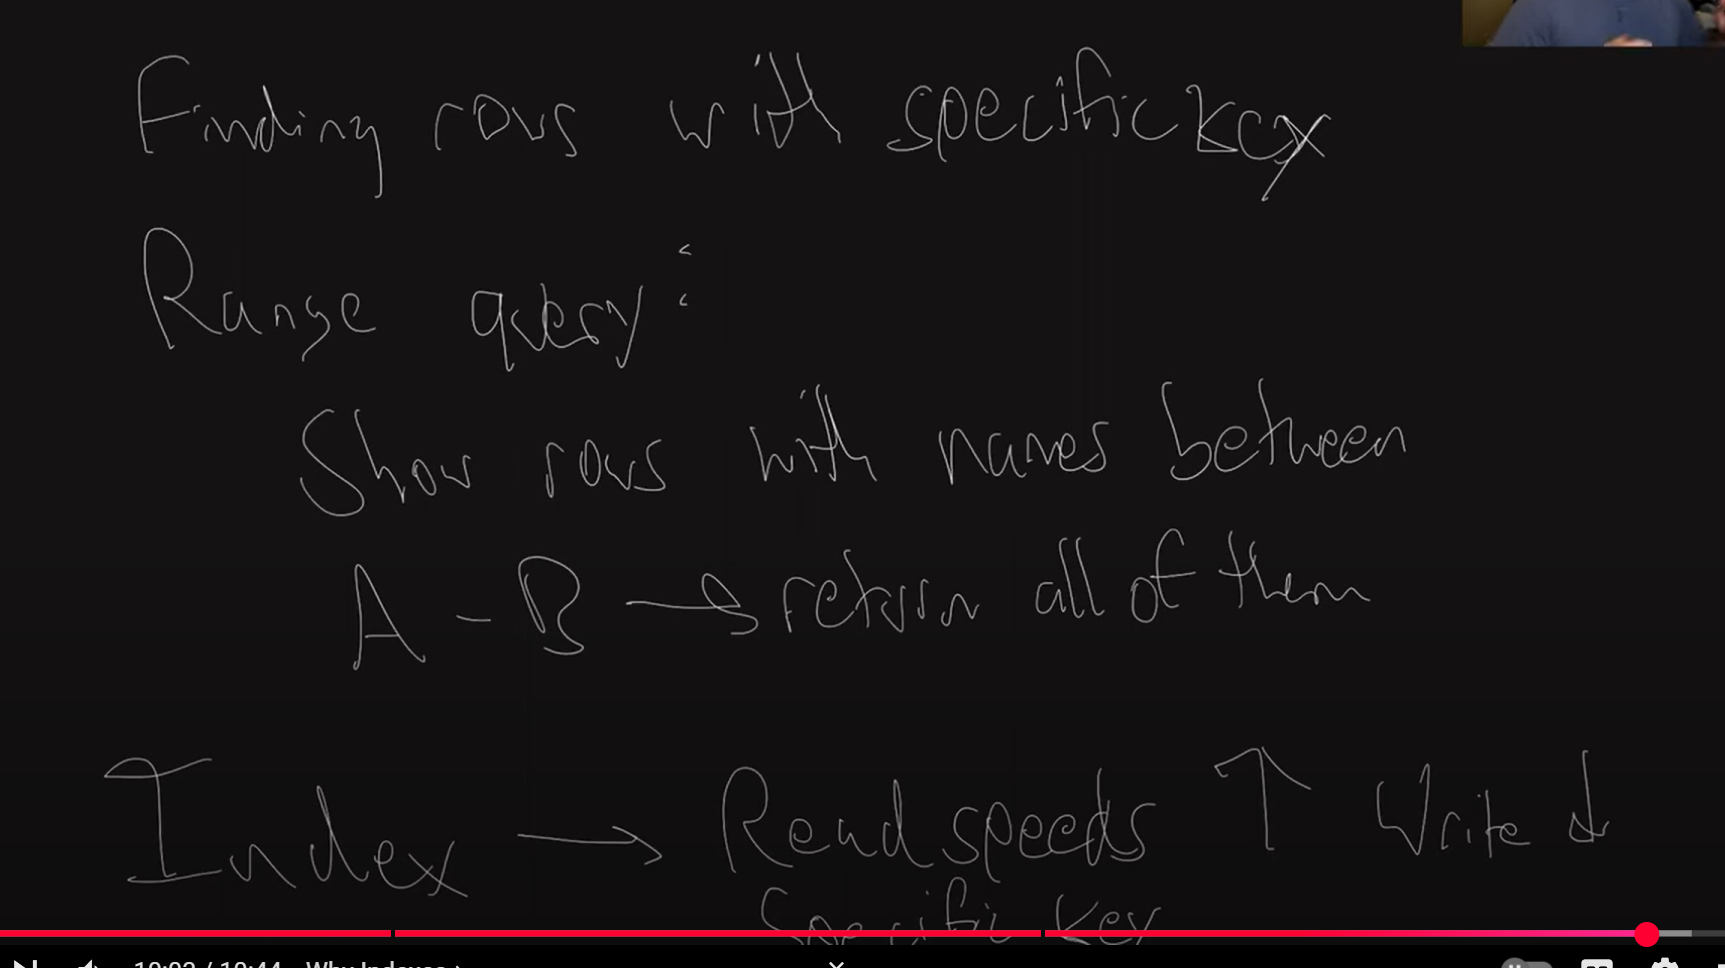 Finding rows with specific key
Range query:
Show rows with names between
A - B → return all of them
Index → Read speeds ↑ Write ↓
Specific Key